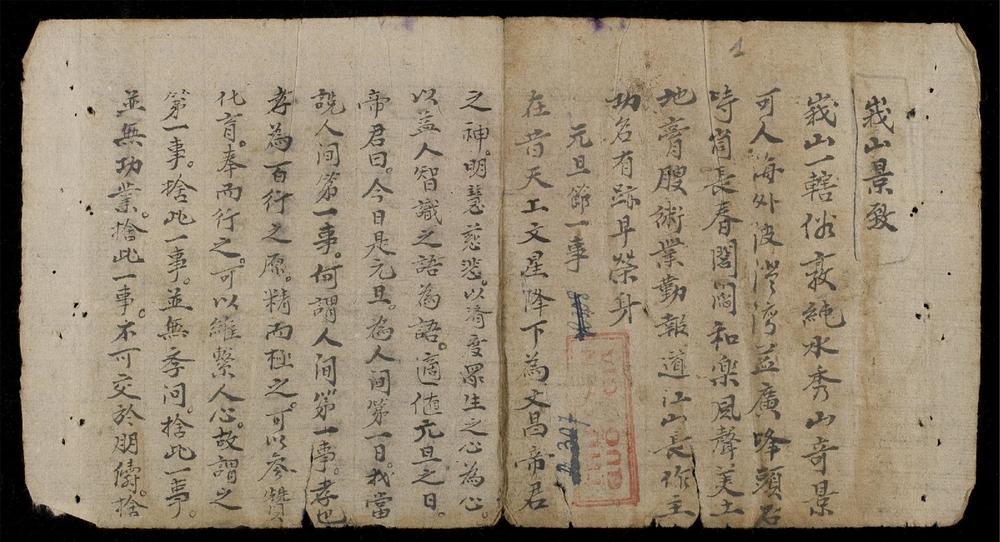 峩山景致
峩山一轄俗敦純水秀山奇景
可人海外波澄湾益廣峰頭名
時尚長春閭閻和樂風聲美土
地膏腴術業勤報道江山長作主
功名有跡早榮身
元旦節一事
在昔天工文星降下為文昌帝君
之神明慧慈悲以済度眾生之心為心
以益人智識之語為語適值元旦之日
帝君曰今日是元旦為人间第一日我當
說人间第一事何謂人间第一事孝也
孝為百行之原精而極之可以參贊
化育奉而行之可以維繫人心故謂之
第一事捨此一事並無季问捨此一事
並無功業捨此一事不可交於朋儔捨